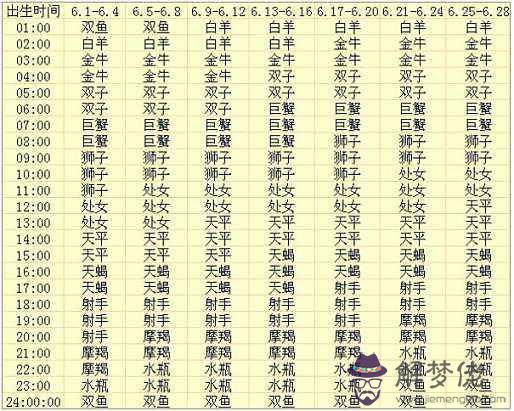 出生时间 6.1-6.4 6.5-6.8 6.9-6.12 6.13-6.16 6.17-6.20 6.21-6.24 6.25-6.28
01:00 双鱼 双鱼 白羊 白羊 白羊 白羊 白羊
02:00 白羊 白羊 白羊 白羊 金牛 金牛 金牛
03:00 金牛 金牛 金牛 金牛 金牛 金牛 金牛
04:00 金牛 金牛 金牛 双子 双子 双子 双子
05:00 双子 双子 双子 双子 双子 双子 双子
06:00 双子 双子 双子 巨蟹 巨蟹 巨蟹 巨蟹
07:00 巨蟹 巨蟹 巨蟹 巨蟹 巨蟹 巨蟹 巨蟹
08:00 巨蟹 巨蟹 巨蟹 巨蟹 狮子 狮子 狮子
09:00 狮子 狮子 狮子 狮子 狮子 狮子 狮子
10:00 狮子 狮子 狮子 狮子 狮子 处女 处女
11:00 狮子 处女 处女 处女 处女 处女 处女
12:00 处女 处女 处女 处女 处女 处女 天平
13:00 处女 处女 天平 天平 天平 天平 天平
14:00 天平 天平 天平 天平 天平 天平 天平
15:00 天平 天平 天平 天蝎 天蝎 天蝎 天蝎
16:00 天蝎 天蝎 天蝎 天蝎 天蝎 天蝎 天蝎
17:00 天蝎 天蝎 天蝎 天蝎 射手 射手 射手
18:00 射手 射手 射手 射手 射手 射手 射手
19:00 射手 射手 射手 射手 射手 摩羯 摩羯
20:00 射手 摩羯 摩羯 摩羯 摩羯 摩羯 摩羯
21:00 摩羯 摩羯 摩羯 摩羯 摩羯 水瓶 水瓶
22:00 摩羯 水瓶 水瓶 水瓶 水瓶
23:00 水瓶 水瓶 水瓶 水瓶
24:00:00 双鱼 双鱼 双鱼 双鱼 双鱼 双鱼 双鱼
解梦佬
jiemengliao.com